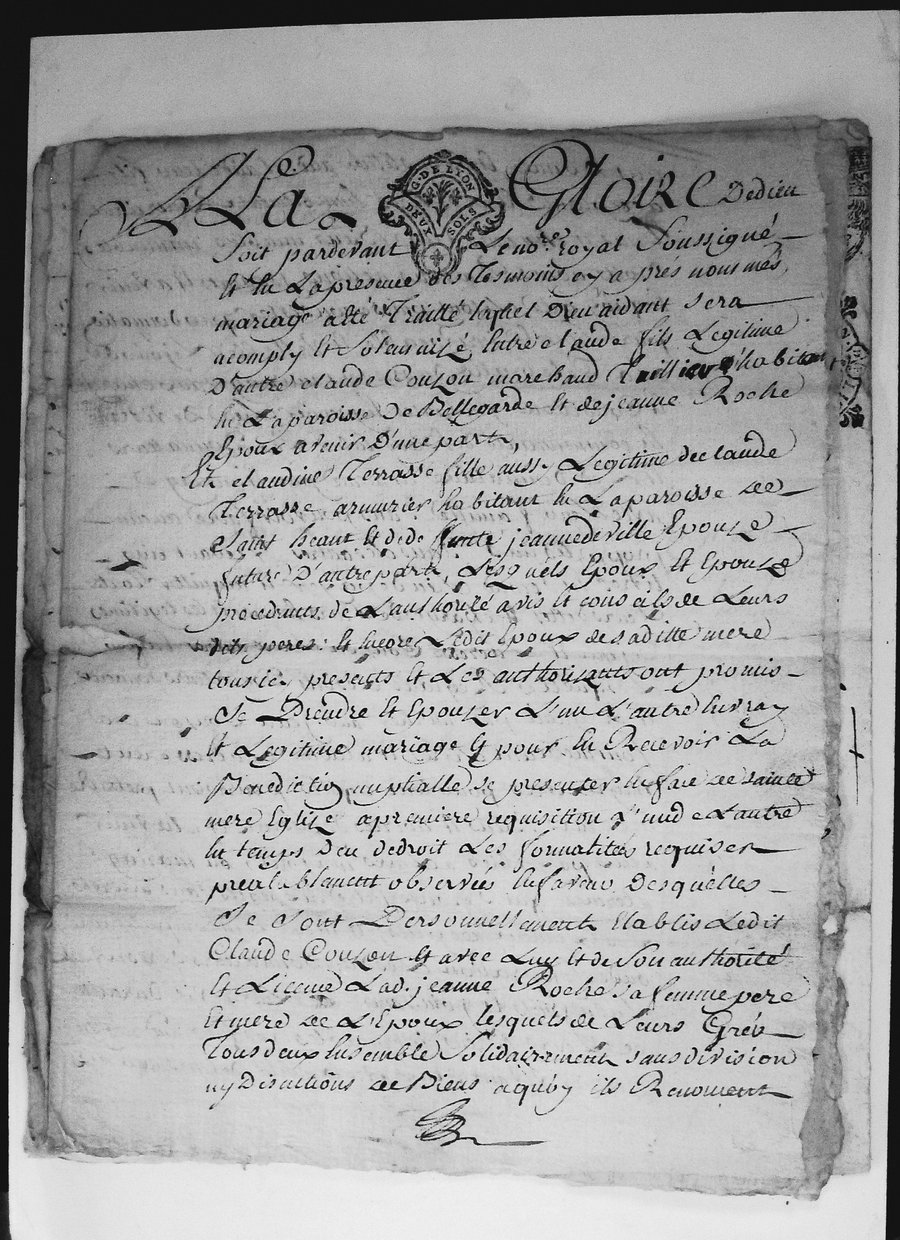 A La Gloire Dedieu
G. DE LYON
DEUX SOLS
Soit pardevant Le no.re royal Soussigné
Et En La presence des Tesmoins cy aprés nommés
mariage a eté Traitté Lequel Dieu aidant sera
acomply Et Solemnisé Entre claude fils Legitime
D'autre claude Couzon marchand habitant
En La paroisse De Bellegarde Et de jeanne Roche
Epoux avenir D'une part,
Et claudine Terrasse fille aussy Legitime de claude
Terrasse armurier habitant En La paroisse De
Saint heant Et de deffunte jeanne deville Epouze
future D'autre part, Lesquels Epoux Et Epouze
procedants de L'authorité avis Et conseils de Leurs
dits peres: Et Encore Ledit Epoux de sa ditte mere
tous icy presents Et Les authorizants ont promis
Se Prendre Et Epouzer L'un L'autre En vray
Et Legitime mariage Et pour En Recevoir La
Benediction nuptialle se presenter En face de sainte
mere Eglise a premiere requisition L'un de L'autre
En temps deu de droit Les formalités requises
prealablement observées En faveur Desquelles
Se Sont Personnellement Etablis Ledit
Claude Couzon Et avec Luy Et de Son authorité
Et Licence Lad. jeanne Roche sa femme pere
Et mere de L'Epoux lesquels de Leurs Grés
Tous deux Ensemble Solidairement sans division
ny Discutions de Biens a quoy ils Renoncent